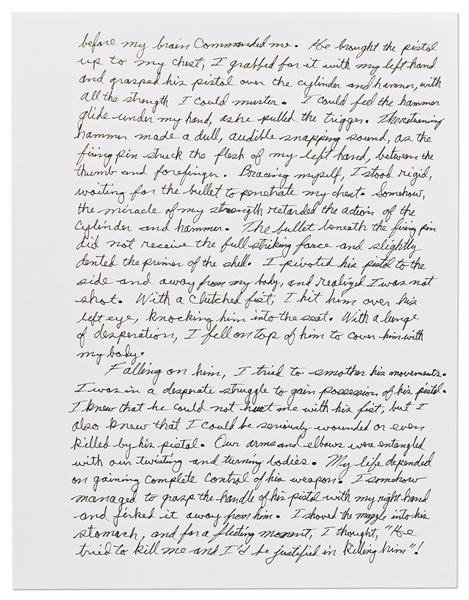 before my brain Commanded me. He brought the pistol
up to my chest, I grabbed for it with my left hand
and grasped his pistol over the cylinder and hammer, with
all the strength I could muster. I could feel the hammer
glide under my hand, as he pulled the trigger. The returning
hammer made a dull, audible snapping sound, as the
firing pin struck the flesh of my left hand, between the
thumb and forefinger. Bracing myself, I stood rigid,
waiting for the bullet to penetrate my chest. Somehow,
the miracle of my strength retarded the action of the
cylinder and hammer. The bullet beneath the firing pin
did not receive the full striking force and slightly
dented the primer of the shell. I pivoted his pistol to the
side and away from my body, and realized I was not
shot. With a clitched fist, I hit him over his
left eye, knocking him into the seat. With a lunge
of desperation, I fell on top of him to cover him with
my body.
Falling on him, I tried to smother his movements.
I was in a desperate struggle to gain possession of his pistol.
I knew that he could not hurt me with his fist, but I
also knew that I could be seriously wounded or even
killed by his pistol. Our arms and elbows were entangled
with our twisting and turning bodies. My life depended
on gaining complete control of his weapon. I somehow
managed to grasp the handle of his pistol with my right hand
and jirked it away from him. I shoved the muzzle into his
stomach, and for a fleeting moment, I thought, "He
tried to kill me and I'd be justified in killing him"!